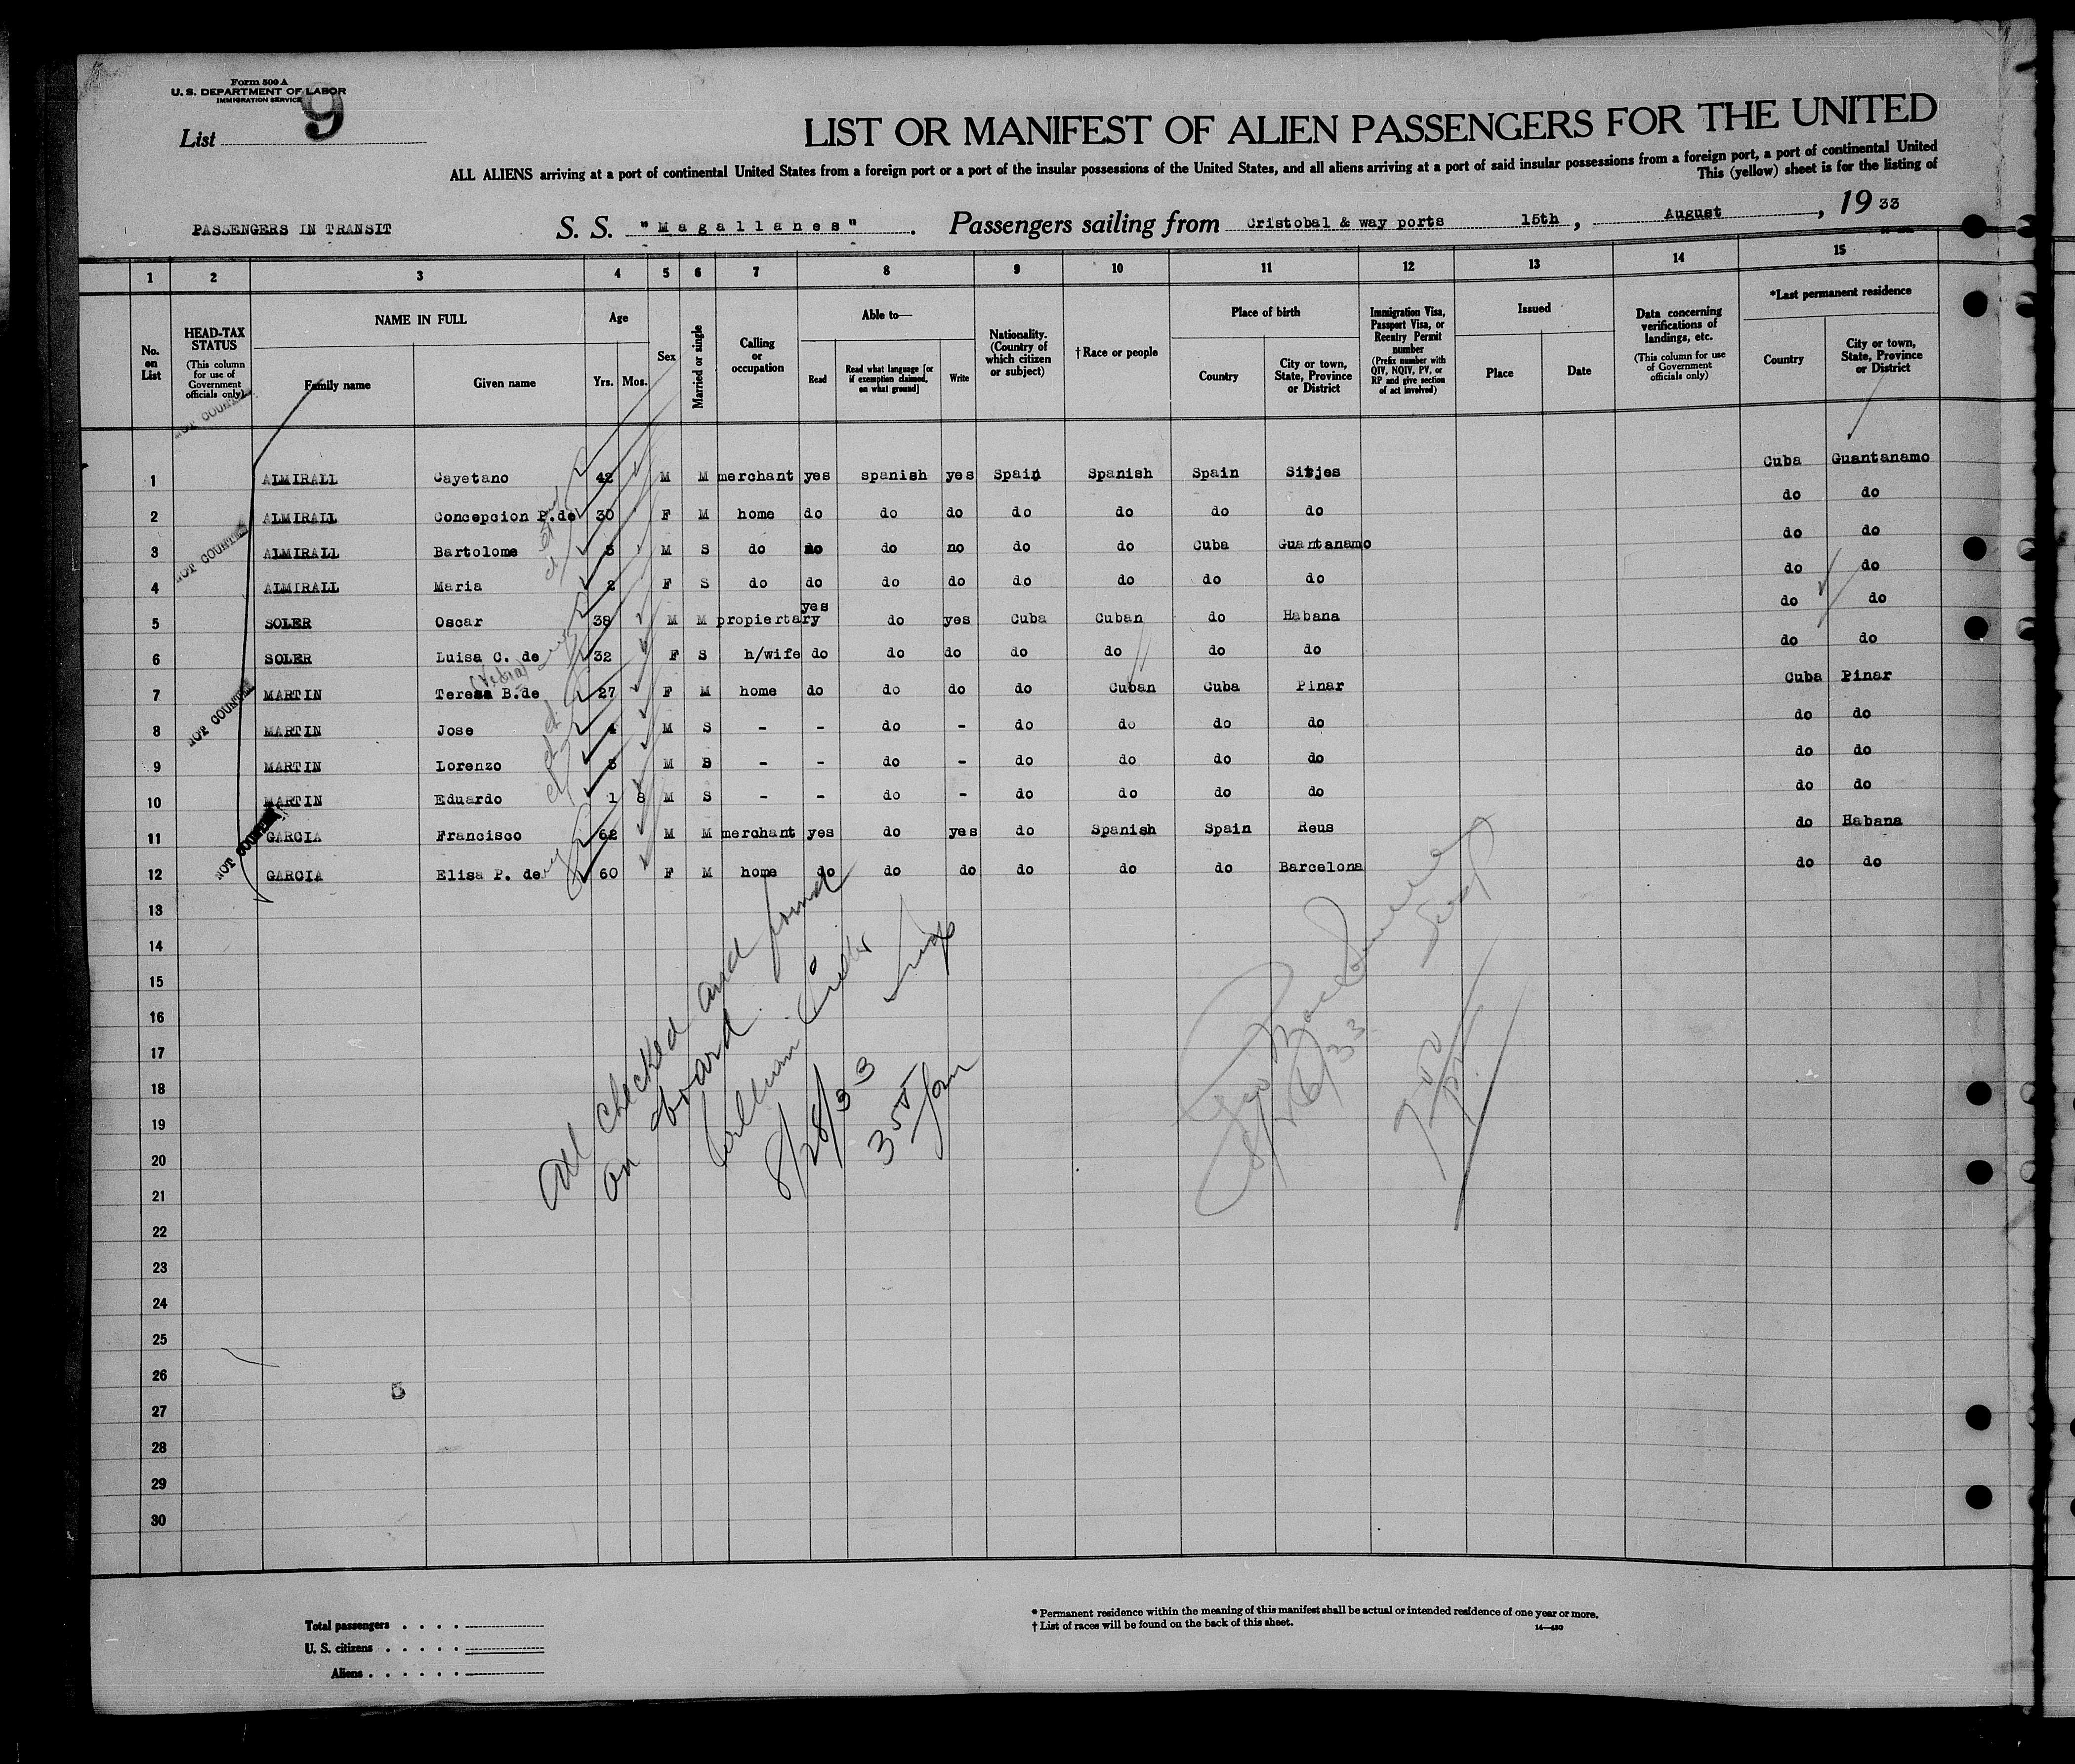 Form 500 A
U. S. DEPARTMENT OF LABOR
IMMIGRATION SERVICE
List 9
LIST OR MANIFEST OF ALIEN PASSENGERS FOR THE UNITED
ALL ALIENS arriving at a port of continental United States from a foreign port or a port of the insular possessions of the United States, and all aliens arriving at a port of said insular possessions from a foreign port, a port of continental United
This (yellow) sheet is for the listing of
PASSENGERS IN TRANSIT S. S. "Magallanes" . Passengers sailing from Cristobal & way ports 15th , August , 19 33
1 2 3 4 5 6 7 8 9 10 11 12 13 14 15
No. on List
HEAD-TAX STATUS (This column for use of Government officials only)
NAME IN FULL Family name Given name
Age Yrs. Mos.
Sex
Married or single
Calling or occupation
Able to— Read Read what language [or if exemption claimed, on what ground] Write
Nationality. (Country of which citizen or subject)
†Race or people
Place of birth Country City or town, State, Province or District
Immigration Visa, Passport Visa, or Reentry Permit number (Prefix number with QIV, NQIV, PV, or RP and give section of act involved)
Issued Place Date
Data concerning verifications of landings, etc. (This column for use of Government officials only)
*Last permanent residence Country City or town, State, Province or District
NOT COUNTED
1 ALMIRALL Cayetano 42 M M merchant yes spanish yes Spain Spanish Spain Sitjes Cuba Guantanamo
2 ALMIRALL Concepcion P.de 30 F M home do do do do do do do do do
NOT COUNTED
3 ALMIRALL Bartolome 5 M S do no do no do do Cuba Guantanamo do do
4 ALMIRALL Maria 2 F S do do do do do do do do do do
5 SOLER Oscar 38 M M propiertary yes do yes Cuba Cuban do Habana do do
6 SOLER Luisa C. de 32 F S h/wife do do do do do do do do do
NOT COUNTED
7 MARTIN Teresa B.de 27 F M home do do do do Cuban Cuba Pinar Cuba Pinar
8 MARTIN Jose 4 M S - - do - do do do do do do
9 MARTIN Lorenzo 3 M S - - do - do do do do do do
10 MARTIN Eduardo 1 8 M S - - do - do do do do do do
NOT COUNTED
11 GARCIA Francisco 62 M M merchant yes do yes do Spanish Spain Reus do Habana
12 GARCIA Elisa P. de 60 F M home do do do do do do Barcelona do do
13
14
15
16
17
18
19
20
21
22
23
24
25
26
27
28
29
30
All checked and found
on board.
William
8/28/33
3 55 pm
8/26/33
5
Total passengers . . . .
U. S. citizens . . . . .
Aliens . . . . . .
* Permanent residence within the meaning of this manifest shall be actual or intended residence of one year or more.
† List of races will be found on the back of this sheet.
14—430